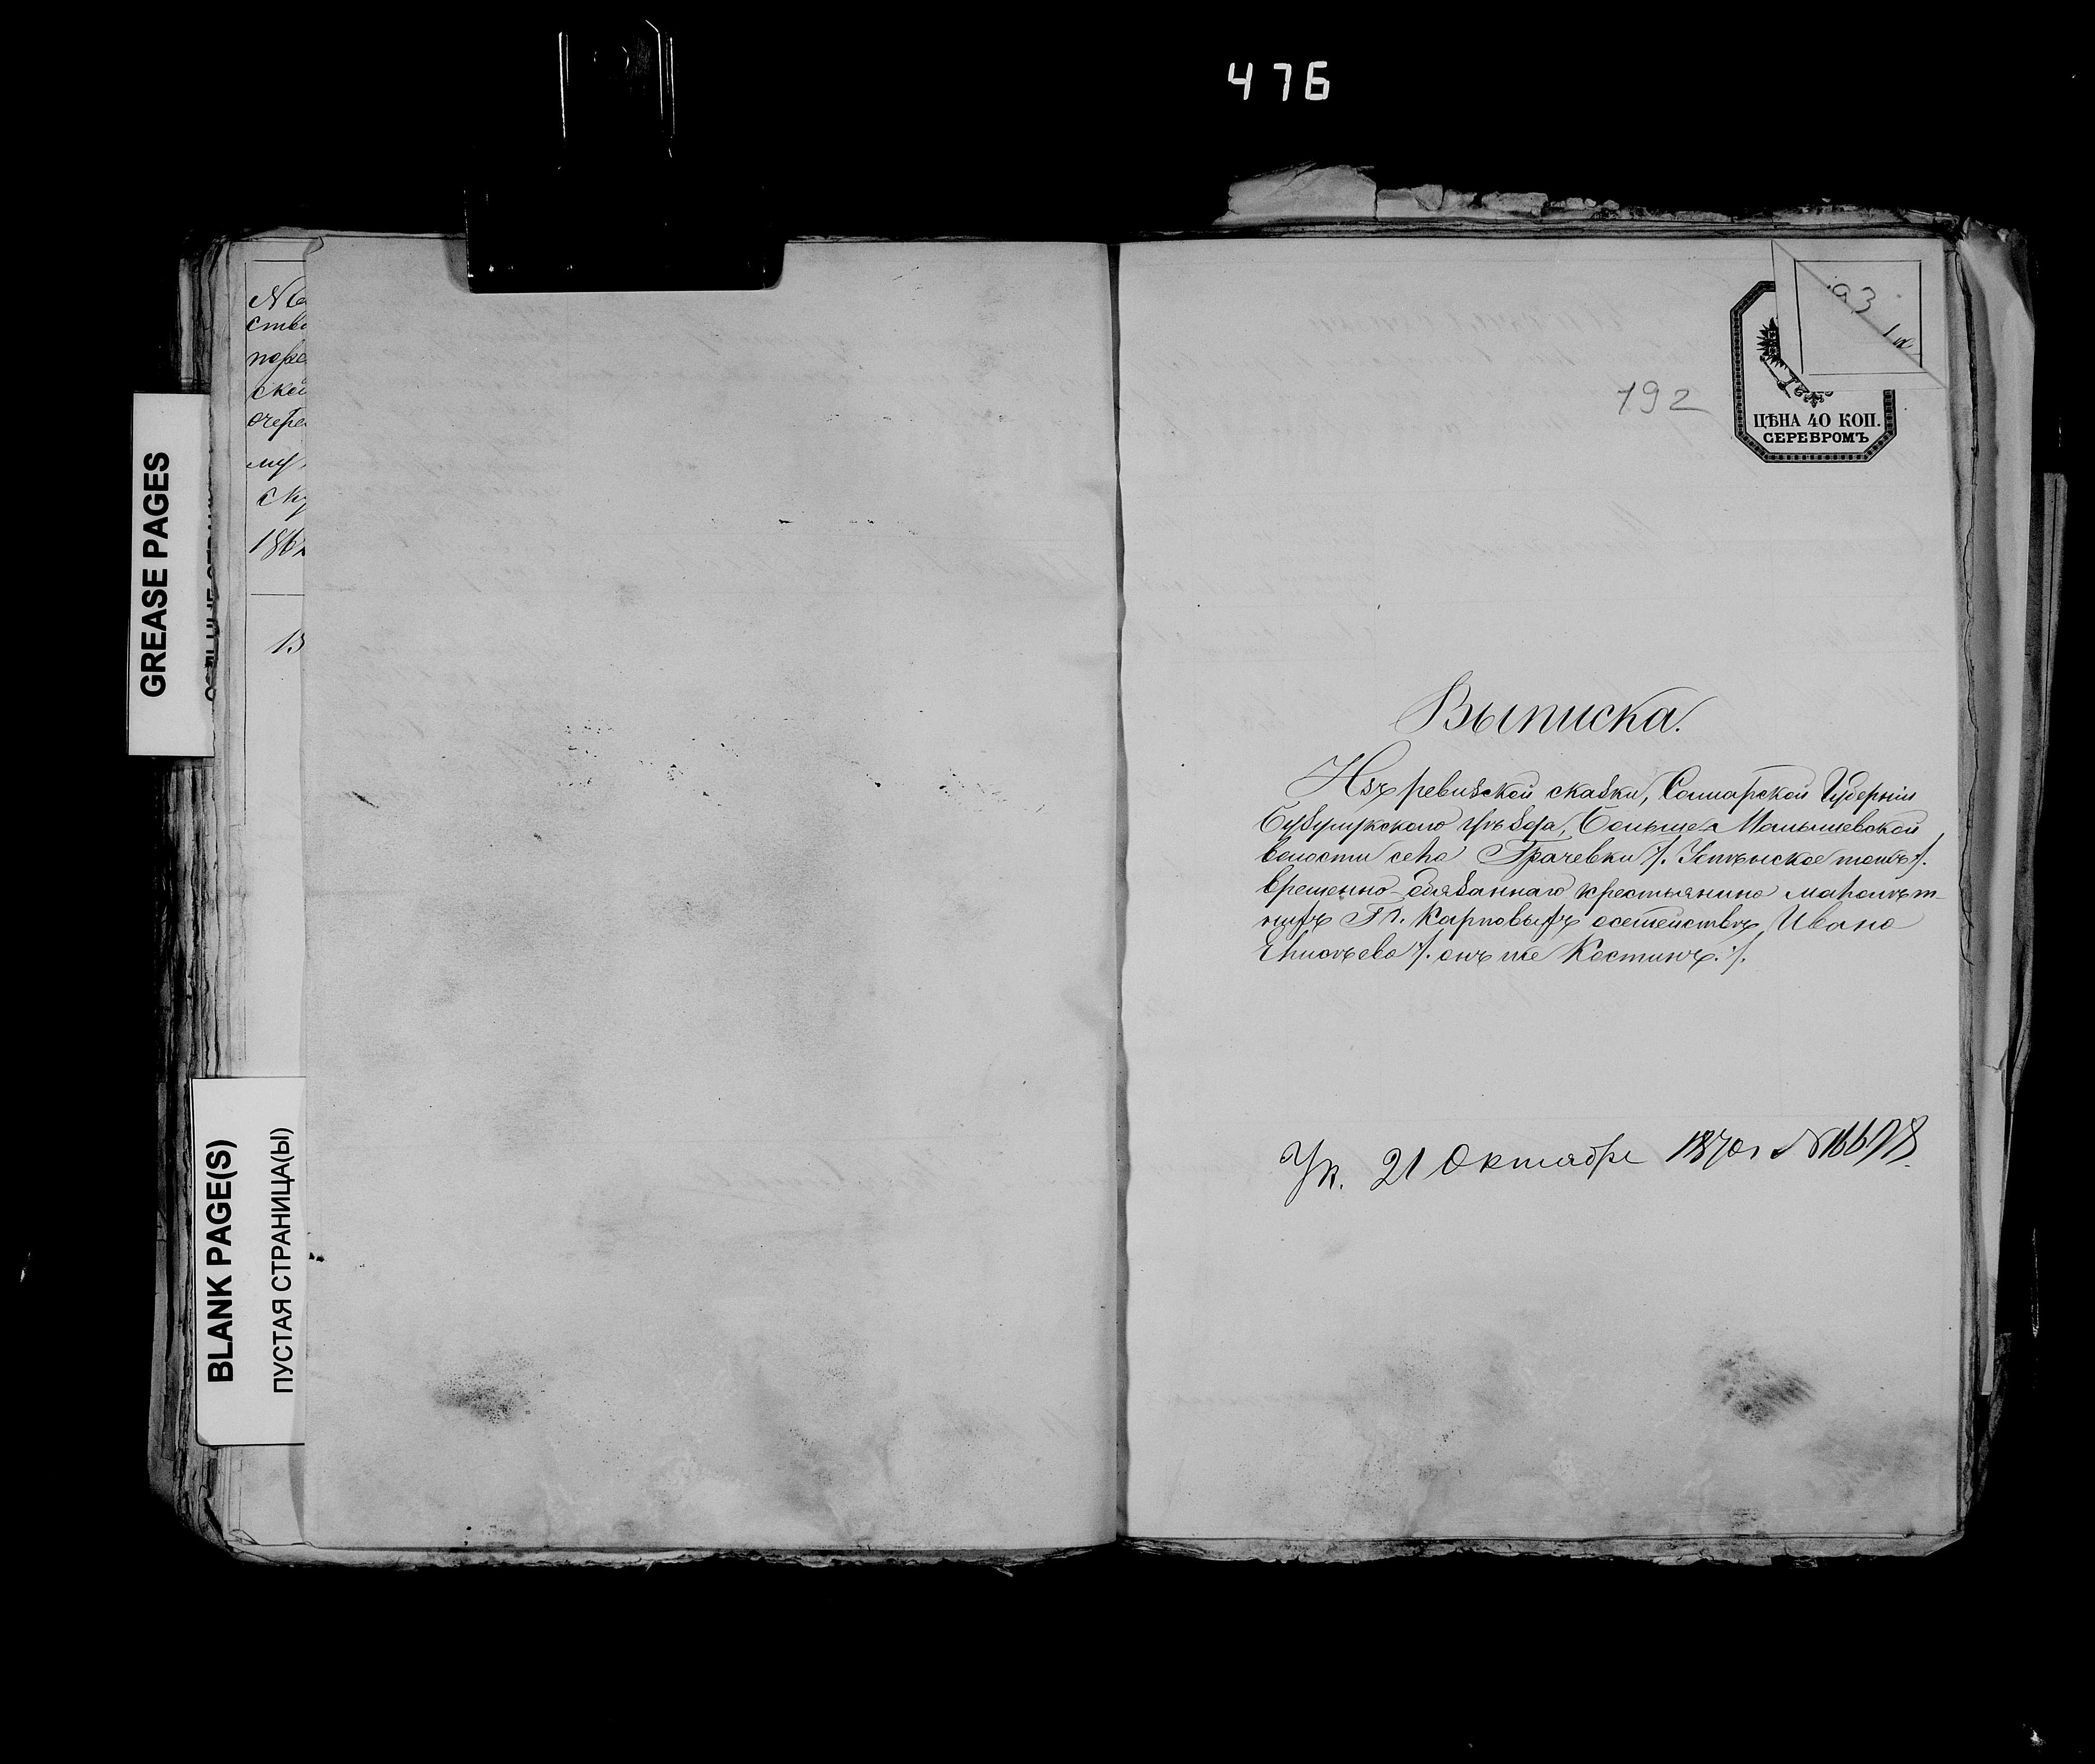 476
GREASE PAGES
BLANK PAGE(S)
ПУСТАЯ СТРАНИЦА(Ы)
ство
ской
186
13
192
93
ЦѢНА 40 КОП.
СЕРЕБРОМЪ
Выписка.
Изъ ревизской сказки, Самарской Губерніи
Бузулукского уѣзда, Больше Малышевской
волости села Грачевки /:
временно-обязаннаго крестьянина малолѣт-
нихъ Гг. Карповыхъ о семействѣ Ивана
Елисѣева /: онъ же Костинъ :/.
Ук. 21 Октября 1870 г №16698.